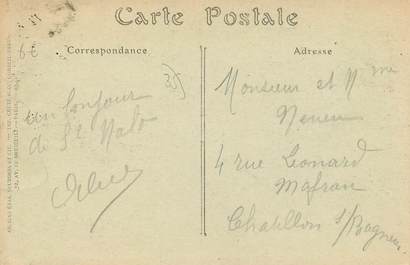 Carte Postale
Correspondance
Adresse
6€
35
un bonjour
de St Malo
Monsieur et Mme
Neveu
4 rue Léonard
Mafran
Chatillon s/Bagneux